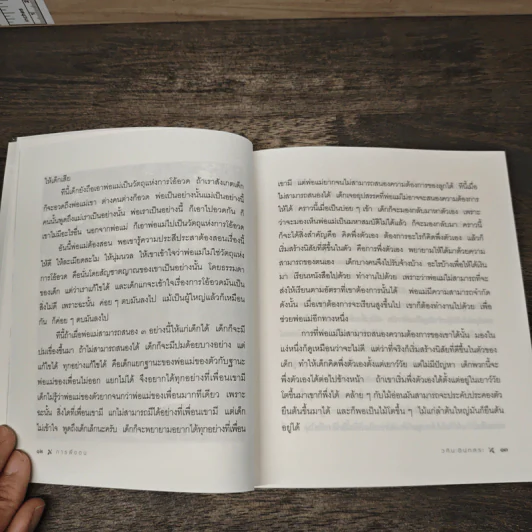 ให้เด็กเสีย
ทีนี้เด็กยังถือเอาพ่อแม่เป็นวัตถุแห่งการโอ้อวด ถ้าเราสังเกตเด็ก
ก็จะอวดถึงพ่อแม่เขา ต่างคนต่างก็อวด พ่อเป็นอย่างนั้นแม่เป็นอย่างนี้
คนนั้นพูดถึงแม่เราเป็นอย่างนั้น พ่อเราเป็นอย่างนี้ ก็เอาไปอวดกัน ก็
เขาไม่มีอะไรอื่น นอกจากพ่อแม่ ก็เอาพ่อแม่เป็นวัตถุแห่งการโอ้อวด
อันนี้พ่อแม่ต้องสอน พอเขารู้ความประสีประสาต้องสอนเรื่องนี้
ให้ดี ให้ละเมียดละไม ให้นุ่มนวล ให้เขาเข้าใจว่าพ่อแม่ไม่ใช่วัตถุแห่ง
การโอ้อวด คือมันโดยสัญชาตญาณของเขาเป็นอย่างนั้น โดยธรรมดา
ของเด็ก แต่ว่าเราแก้ไขได้ และเด็กแกจะเข้าใจเรื่องการโอ้อวดมันเป็น
สิ่งไม่ดี เพราะฉะนั้น ค่อย ๆ ตบมันลงไป แม้เป็นผู้ใหญ่แล้วก็เหมือน
กัน ก็ค่อย ๆ ตบมันลงไป
ทีนี้ถ้าเมื่อพ่อแม่สามารถสนอง ๓ อย่างนี้ให้แก่เด็กได้ เด็กก็จะมี
ปมเขื่องขึ้นมา ถ้าไม่สามารถสนองได้ เด็กก็จะมีปมด้อยบางอย่าง แต่
แก้ไขได้ ทุกอย่างแก้ไขได้ คือเด็กแยกฐานะของพ่อแม่ของตัวกับฐานะ
พ่อแม่ของเพื่อนไม่ออก แยกไม่ได้ จึงอยากได้ทุกอย่างที่เพื่อนเขามี
เด็กไม่รู้ว่าพ่อแม่ของตัวยากจนกว่าพ่อแม่ของเพื่อนมากทีเดียว เพราะ
ฉะนั้น สิ่งใดที่เพื่อนเขามี แกไม่สามารถมีได้อย่างที่เพื่อนเขามี แต่เด็ก
ไม่เข้าใจ พูดถึงเด็กเล็กนะครับ เด็กก็จะพยายามอยากได้ทุกอย่างที่เพื่อน
เขามี แต่พ่อแม่ยากจนไม่สามารถสนองความต้องการของลูกได้ ทีนี้เมื่อ
ไม่สามารถสนองได้ เด็กเจออุปสรรคที่พ่อแม่ไม่อาจจะสนองความต้องการ
ให้ได้ คราวนี้เมื่อเป็นบ่อย ๆ เข้า เด็กก็จะมองกลับมาหาตัวเอง เพราะ
ว่าจะมองเห็นพ่อแม่เป็นมหาสมบัติไม่ได้แล้ว ก็จะมองกลับมา คราวนี้
ก็จะได้สิ่งสำคัญคือ คิดพึ่งตัวเอง ต้องการอะไรก็คิดพึ่งตัวเอง แล้วก็
เริ่มสร้างนิสัยที่ดีขึ้นในตัว คือการพึ่งตัวเอง พยายามให้ได้มาด้วยความ
สามารถของตนเอง เด็กบางคนจึงไปรับจ้างบ้าง อะไรบ้างเพื่อให้ได้เงิน
มา เรียนหนังสือไปด้วย ทำงานไปด้วย เพราะว่าพ่อแม่ไม่สามารถที่จะ
ส่งให้เรียนตามอัตราที่เขาต้องการนั้นได้ พ่อแม่มีความสามารถจำกัด
ดังนั้น เมื่อเขาต้องการจะเรียนสูงขึ้นไป เขาก็ต้องทำงานไปด้วย เพื่อ
ช่วยพ่อแม่อีกทางหนึ่ง
การที่พ่อแม่ไม่สามารถสนองความต้องการของเขาได้นั้น มองใน
แง่หนึ่งก็ดูเหมือนว่าจะไม่ดี แต่ว่าที่จริงก็เริ่มสร้างนิสัยที่ดีขึ้นในตัวของ
เด็ก ทำให้เด็กคิดพึ่งตัวเองตั้งแต่เยาว์วัย แต่ไม่มีปัญหา เด็กพวกนี้จะ
พึ่งตัวเองได้ต่อไปข้างหน้า ถ้าเขาเริ่มพึ่งตัวเองได้ตั้งแต่อยู่ในเยาว์วัย
โตขึ้นมาเขาก็พึ่งได้ คล้าย ๆ กับไม้อ่อนมันสามารถจะประดับประคองตัว
ยืนต้นขึ้นมาได้ และก็พอเป็นไม้โตขึ้น ๆ ไม้แก่ลำต้นใหญ่มันก็ยืนต้น
อยู่ได้